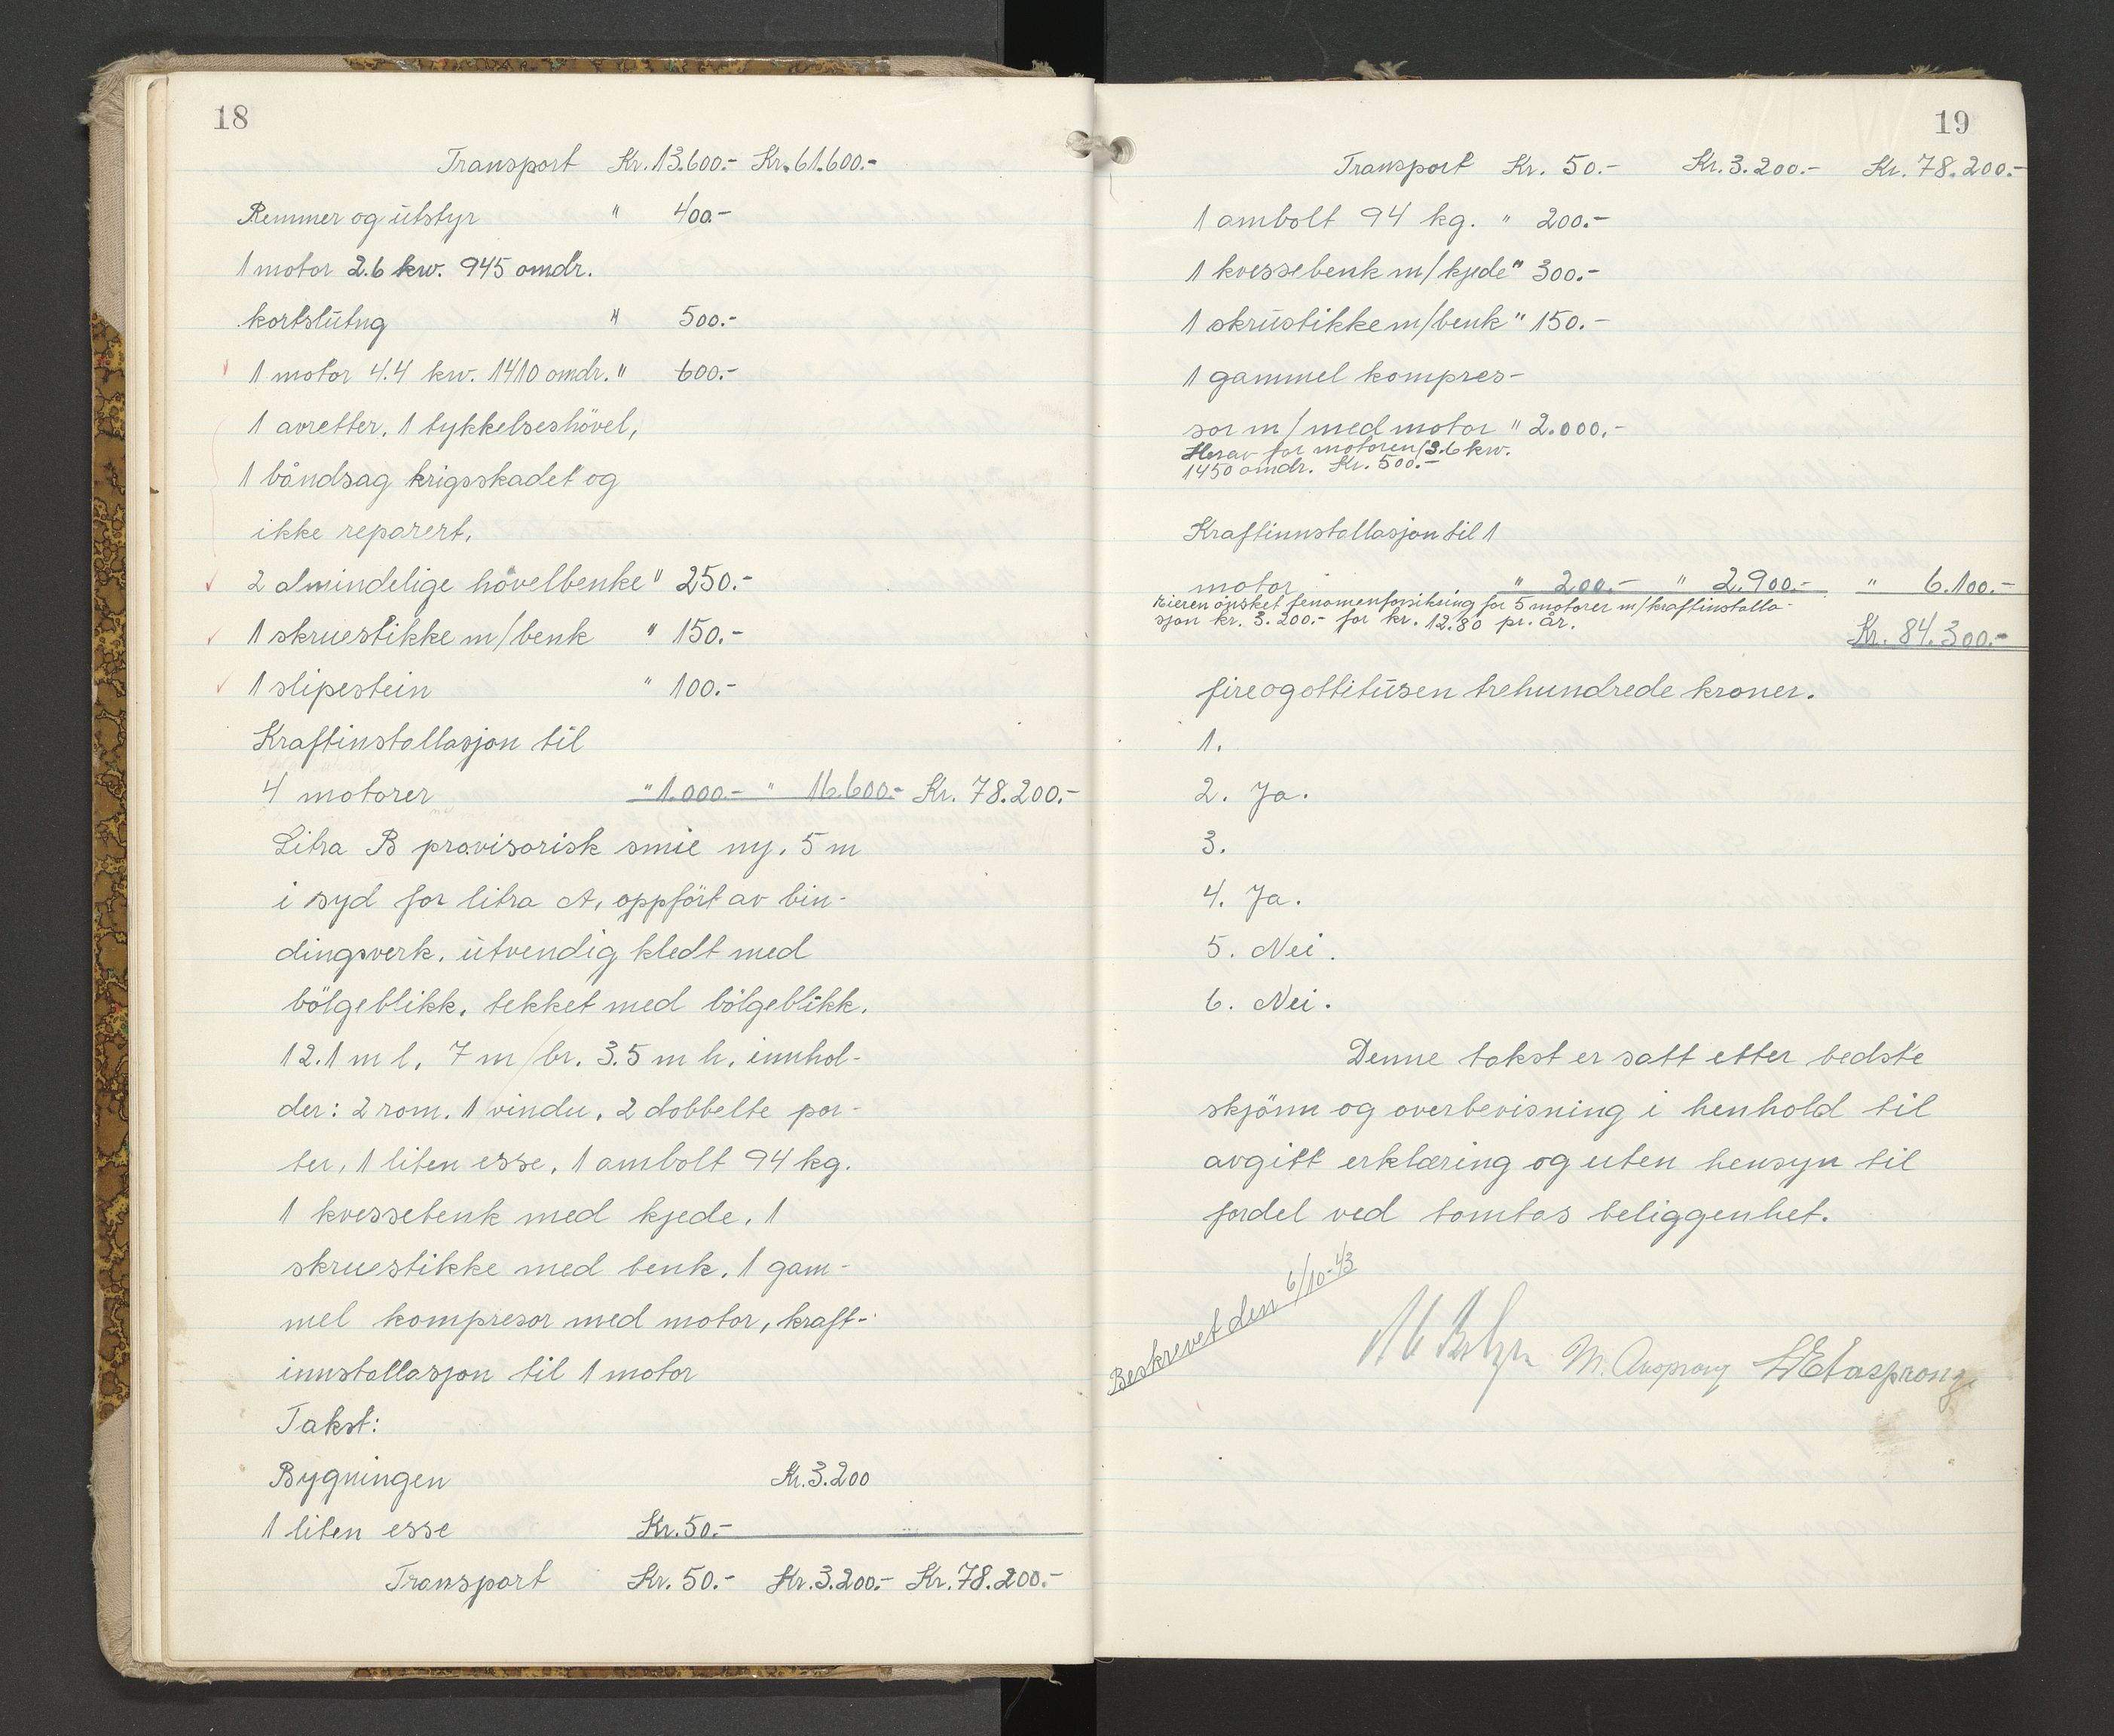 18
Transport Kr. 13.600.- Kr. 61.600.-
Remmer og utstyr " 400.-
1 motor 2.6 kw. 945 omdr.
kortslutng " 500.-
1 motor 4.4 kw. 1410 omdr. " 600.-
1 avretter. 1 tykkelseshövel,
1 båndsag krigsskadet og
ikke reparert.
2 almindelige hövelbenke " 250.-
1 skruestikke m/benk " 150.-
1 slipestein " 100.-
Kraftinstallasjon til
4 motorer " 1.000.- " 16.600.- Kr. 78.200.-
Litra B provisorisk smie ny. 5 m
i syd for litra A, oppfört av bin-
dingsverk. utvendig kledt med
bölgeblikk. tekket med bölgeblikk.
12.1 m l. 7 m br. 3.5 m h. innhol-
der: 2 rom. 1 vindu. 2 dobbelte por-
ter, 1 liten esse. 1 ambolt 94 kg.
1 kvessebenk med kjede. 1
skruestikke med benk. 1 gam-
mel kompresor med motor, kraft-
innstallasjon til 1 motor
Takst:
Bygningen Kr. 3.200
1 liten esse Kr. 50.-
Transport Kr. 50.- Kr. 3.200.- Kr. 78.200.-
19
Transport Kr. 50.- Kr. 3.200.- Kr. 78.200.-
1 ambolt 94 kg. " 200.-
1 kvessebenk m/kjede " 300.-
1 skrustikke m/benk " 150.-
1 gammel kompres-
sor m/med motor " 2.000.-
Herav for motoren/3.6 kw.
1450 omdr. Kr. 500.-
Kraftinnstallasjon til 1
motor " 200.- " 2.900.- " 6.100.-
Eieren önsket fenomenforsikring for 5 motorer m/kraftinstalla-
sjon kr. 3.200.- for kr. 12.80 pr. år.
Kr. 84.300.-
fireogottitusen trehundrede kroner.
1.
2. Ja.
3.
4. Ja.
5. Nei.
6. Nei.
Denne takst er satt etter bedste
skjönn og overbevisning i henhold til
avgitt erklæring og uten hensyn til
fordel ved tomtas beliggenhet.
Beskrevet den 6/10-43
M. Ausprong